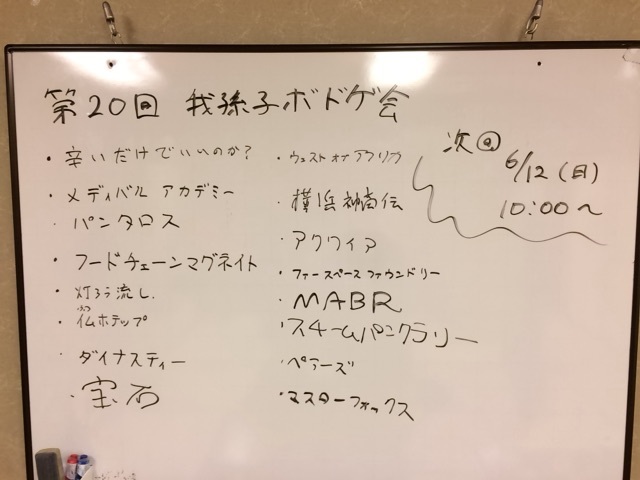 第20回 我孫子ボドゲ会
・辛いだけでいいのか?
・メディバル アカデミー
・パンタロス
・フードチェーンマグネイト
・灯ろう流し
ぶつ
・仏ホテップ
・ダイナスティー
・宝石
・ウェストオブアフリカ
・横浜紳商伝
・アクワイア
・ファースペースファウンドリー
・MABR
・スチームパンクラリー
・ペアーズ
・マスターフォックス
次回
6/12(日)
10:00〜